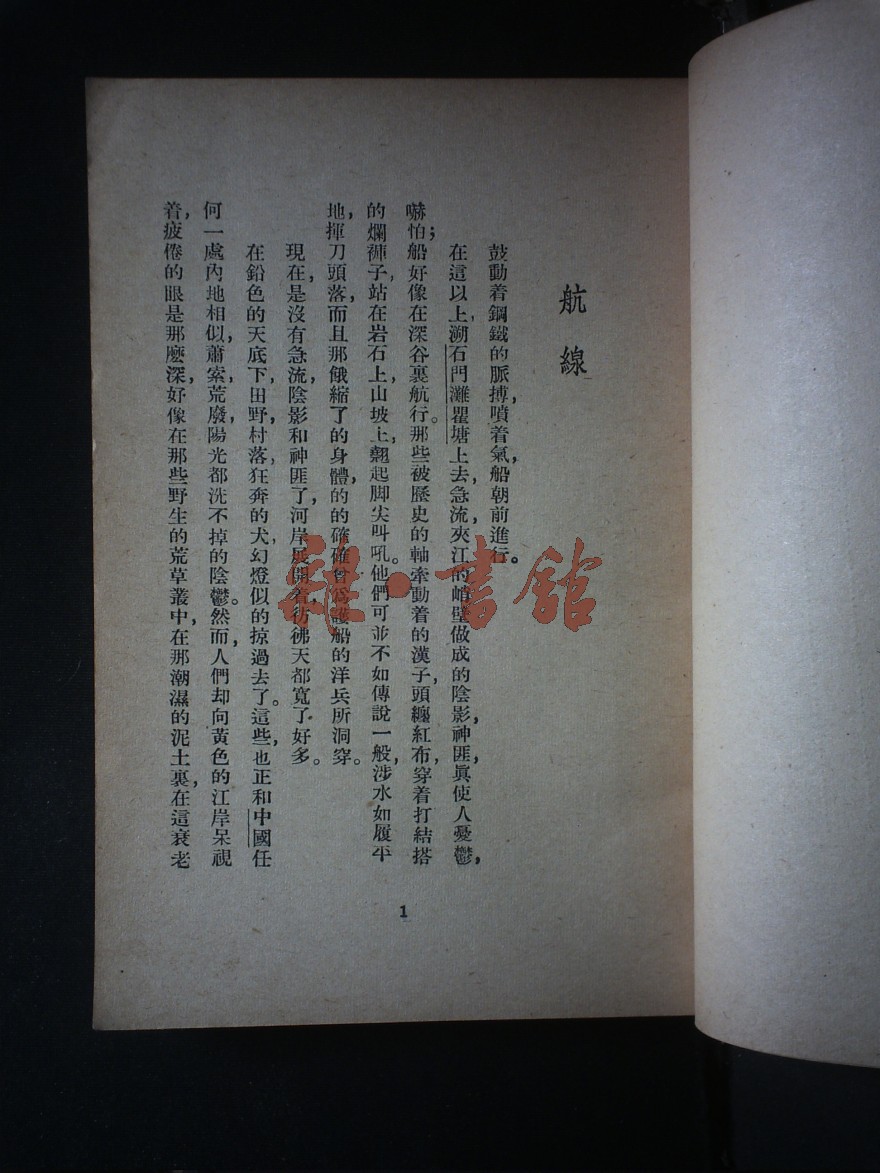 航線
鼓動着鋼鐵的脈搏,噴着氣,船朝前進行。
在這以上,溯石門灘瞿塘上去,急流,夾江的峭壁做成的陰影,神匪,眞使人憂鬱,
嚇怕;船好像在深谷裏航行。那些被歷史的軸牽動着的漢子,頭纏紅布,穿着打結搭
的爛褲子,站在岩石上,山坡上,翹起脚尖叫吼。他們可並不如傳說一般,涉水如履平
地,揮刀頭落,而且那餓縮了的身體,的的確確曾爲護船的洋兵所洞穿。
現在,是沒有急流,陰影和神匪了,河岸展開着,彷彿天都寬了好多。
在鉛色的天底下,田野,村落,狂奔的犬,幻燈似的掠過去了。這些,也正和中國任
何一處內地相似,蕭索,荒廢,陽光都洗不掉的陰鬱。然而,人們却向黃色的江岸呆視
着,疲倦的眼是那麼深,好像在那些野生的荒草叢中,在那潮濕的泥土裏,在這衰老
1
雜·書館